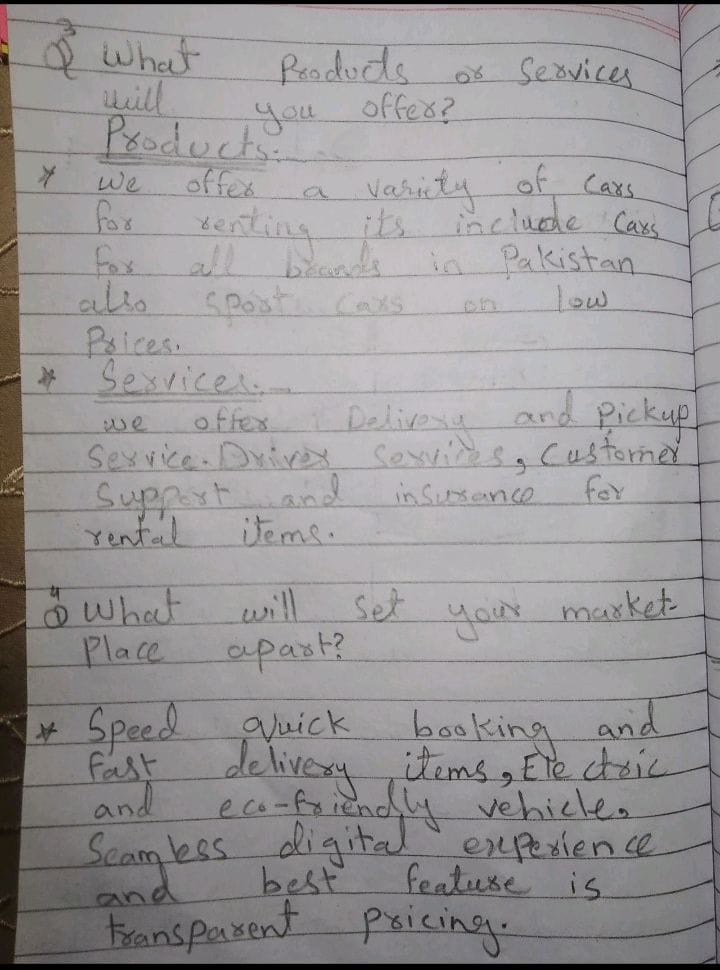 Q3 What Products or Services
will you offer?
Products:-
* we offer a variety of Cars
for renting its include Cars
for all brands in Pakistan
also sport cars on low
Prices.
* Services:-
we offer Delivery and Pickup
Service. Driver Services, Customer
Support and insurance for
rental items.
Q4 What will set your market-
Place apart?
* Speed Quick booking and
fast delivery items, Electric
and eco-friendly vehicle.
Seamless digital experience
and best feature is
transparent pricing.